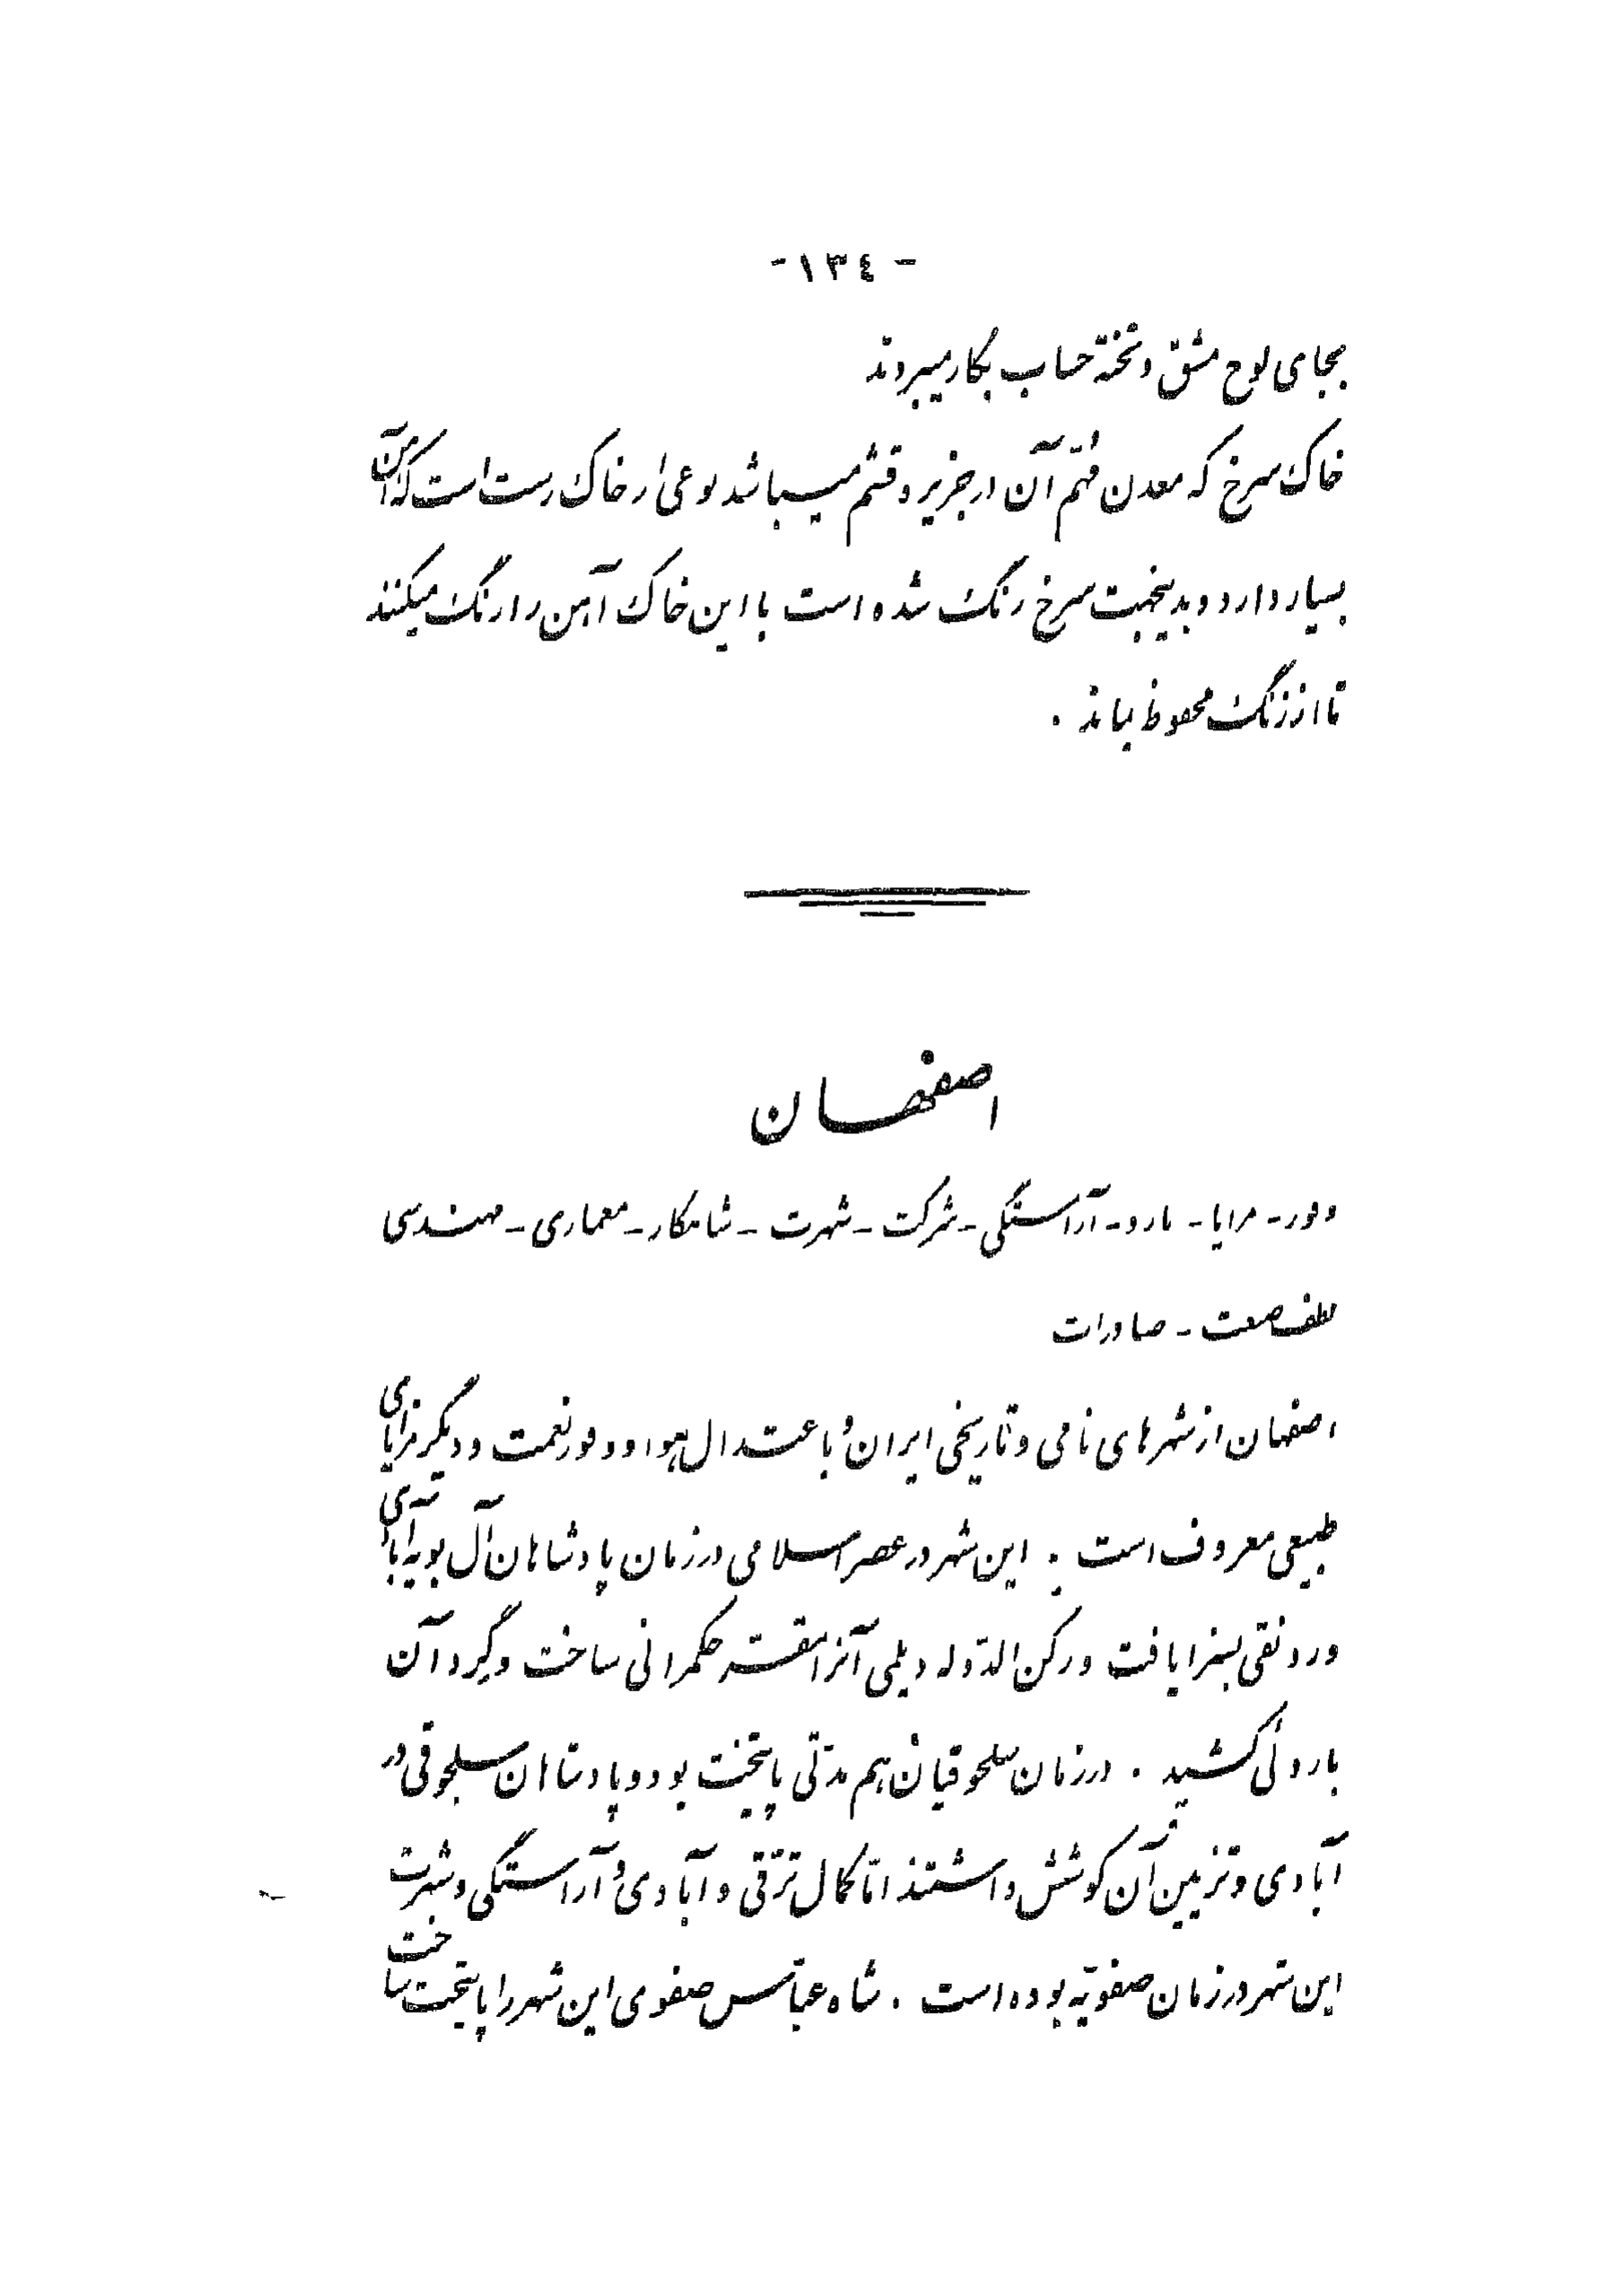 - ١٣٤ -
بجای لوح مشق و تخته حساب بکار میبردند
خاک سرخ که معدن مهم آن در جزیره قشم میباشد نوعی از خاک رست است که آهن
بسیار دارد و بدینجهت سرخ رنگ شده است با این خاک آهن را رنگ میکنند
تا از زنگ محفوظ بماند .
اصفهان
وفور - مزایا - بارو - آراستگی - شرکت - شهرت - شاهکار - معماری - مهندسی
لطف صنعت - صادرات
اصفهان از شهرهای نامی و تاریخی ایران و باعتدال هوا و وفور نعمت و دیگر مزایای
طبیعی معروف است . این شهر در عصر اسلامی در زمان پادشاهان آل بویه آبادی
و رونقی بسزا یافت و رکن الدّوله دیلمی آنرا مقرّ حکمرانی ساخت و گرد آن
باروئی کشید . در زمان سلجوقیان هم مدّتی پایتخت بود و پادشاهان سلجوقی در
آبادی و تزیین آن کوشش داشتند امّا کمال ترقّی و آبادی و آراستگی و شهرت
این شهر در زمان صفویّه بوده است . شاه عبّاس صفوی این شهر را پایتخت ساخت